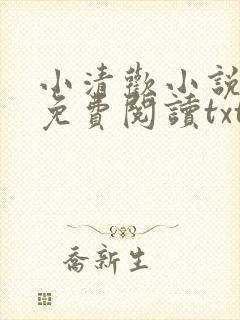 小清歡小說
免費閱讀txt
喬新生